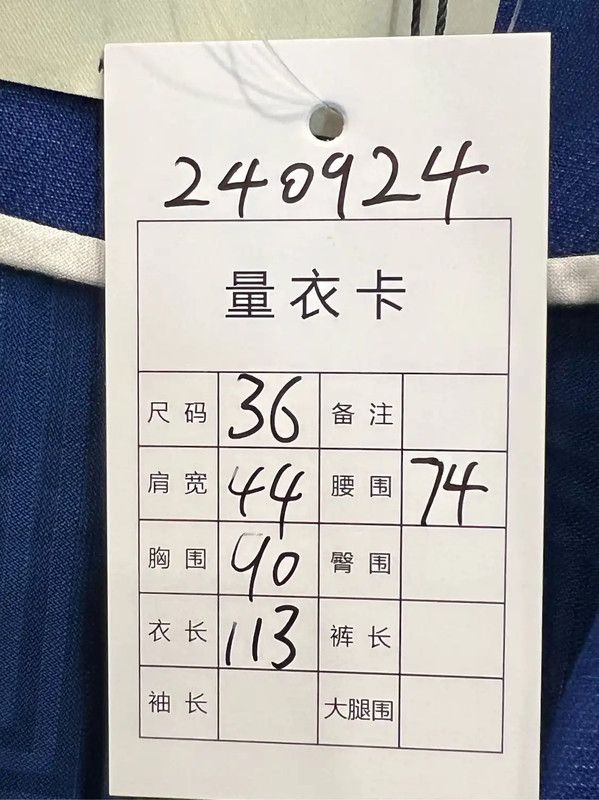 240924
量衣卡
尺码 36 备注
肩宽 44 腰围 74
胸围 90 臀围
衣长 113 裤长
袖长 大腿围